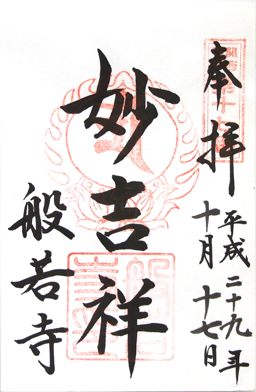 奉拝
平成二十九年
十月十七日
妙吉祥
般若寺